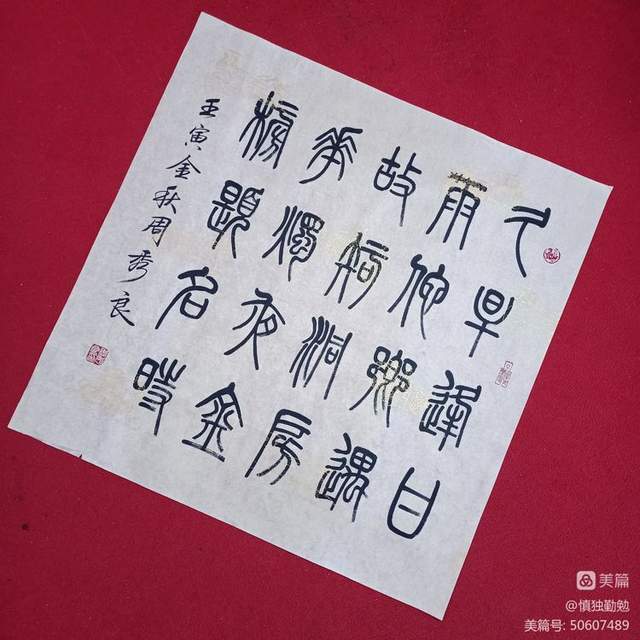 久旱逢甘
雨他鄉遇
故知洞房
華燭夜金
榜題名時
壬寅金秋周秀良
美篇
@慎独勤勉
美篇号: 50607489